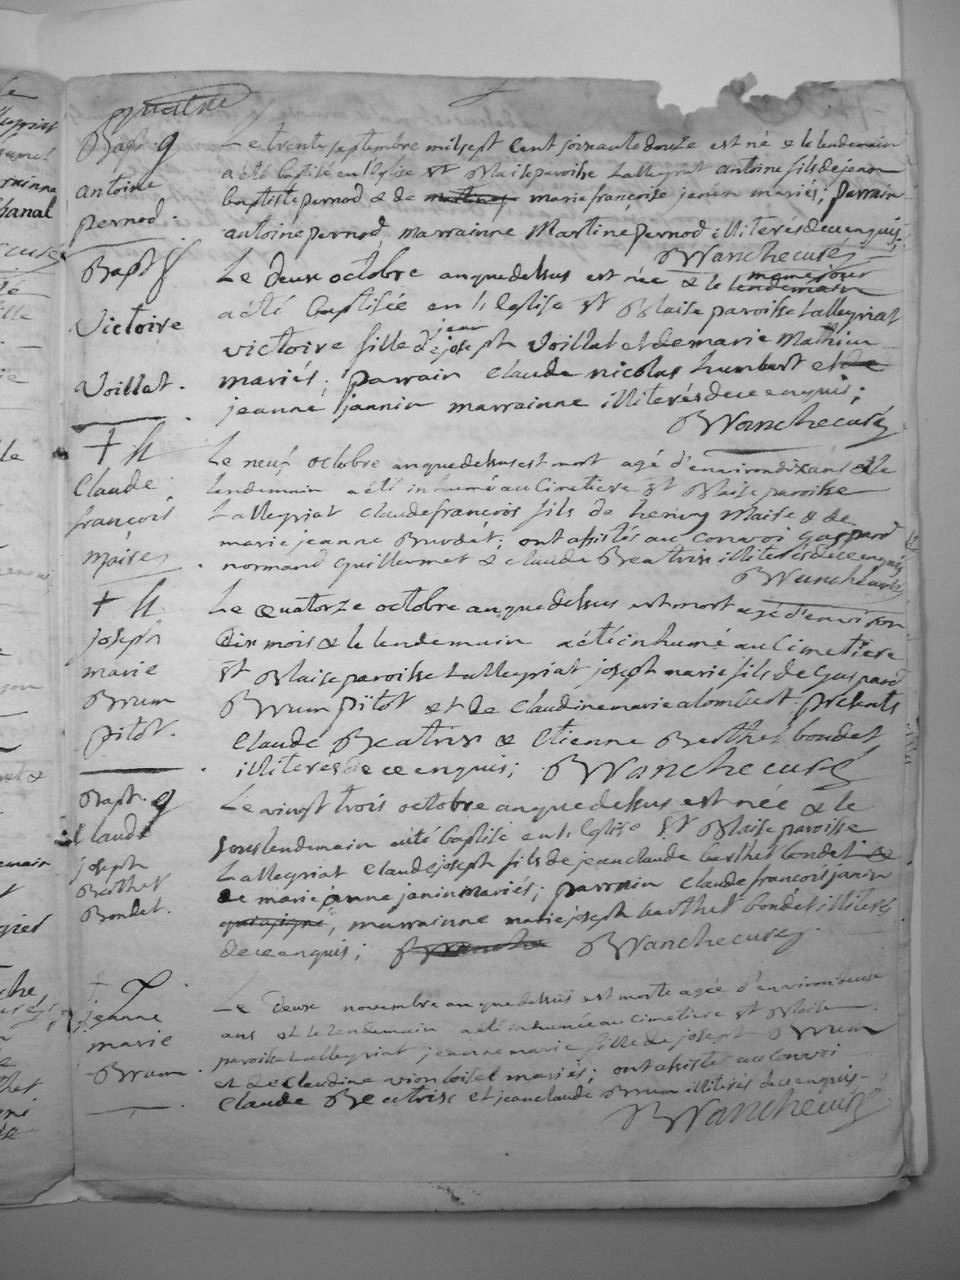 quatre
Bapt. g
antoine
pernod.
Le trente septembre mil sept Cent soixante douze est né & le lendemain
a été baptisé en l'Eglise St Blaise paroisse Lalleyriat antoine fils de jean
baptiste pernod & de marie françoise janin mariés; parrain
antoine pernod, marrainne Martine pernod illiterés de ce enquis;
BVanche curé
Bapt f
Victoire
Voillat.
Le deux octobre an que dessus est née & le lendemain meme jour
a été baptisée en l'Eglise St Blaise paroisse Lalleyriat
victoire fille de jean joseph Voillat et de marie Mathieu
mariés; parrain Claude nicolas humbert et de
jeanne jannin marrainne illiterés de ce enquis;
BVanche curé
+ h
Claude
françois
maises
Le neuf octobre an que dessus est mort agé d'environ dix ans & le
lendemain a été inhumé au Cimetiere St Blaise paroisse
Lalleyriat Claude francois fils de henry Maise & de
marie jeanne Burdet; ont assistés au Convoi Gaspard
normand Guillermet & claude Beatrix illiterés de ce enquis
BVanche curé
+ h
joseph
marie
Brun
pitot.
Le quatorze octobre an que dessus est mort agé d'environ
Six mois & le lendemain a été inhumé au Cimetiere
St Blaise paroisse Lalleyriat joseph marie fils de Gaspard
Brun pitot et de Claudine marie alombert presents
Claude Beatrix & Etienne Berthet bondet
illiterés de ce enquis; BVanche curé
Bapt. g
Claude
joseph
Berthet
Bondet.
Le vingt trois octobre an que dessus est née & le
jour lendemain a été baptisé en l'Eglise St Blaise paroisse
Lalleyriat Claude joseph fils de jean claude berthet bondet &
de marie anne janin mariés; parrain Claude francois janin
qui a signé, marrainne marie joseph berthet bondet illiterés
de ce enquis; BVanche BVanche curé
+
jeanne
marie
Brun.
Le deux novembre an que dessus est morte agée d'environ
ans et le lendemain a été inhumée au Cimetiere St Blaise
paroisse Lalleyriat jeanne marie fille de joseph Brun
et de Claudine mariés; ont assisté au Convoi
Claude Beatrix et jean claude Brun illiterés de ce enquis
BVanche curé